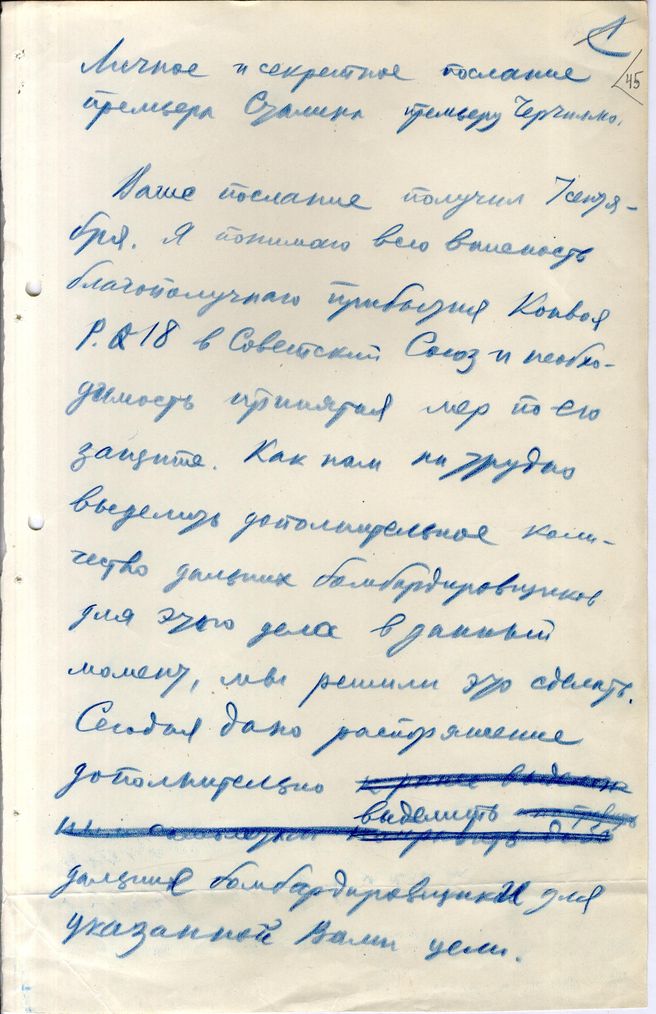 45
Личное и секретное послание
премьера Сталина премьеру Черчиллю.
Ваше послание получил 7 сентя-
бря. Я понимаю всю важность
благополучного прибытия Конвоя
P.Q 18 в Советский Союз и необхо-
димость принятия мер по его
защите. Как нам ни трудно
выделить дополнительное коли-
чество дальних бомбардировщиков
для этого дела в данный
момент, мы решили это сделать.
Сегодня дано распоряжение
дополнительно
выделить
дальние бомбардировщики для
указанной Вами цели.